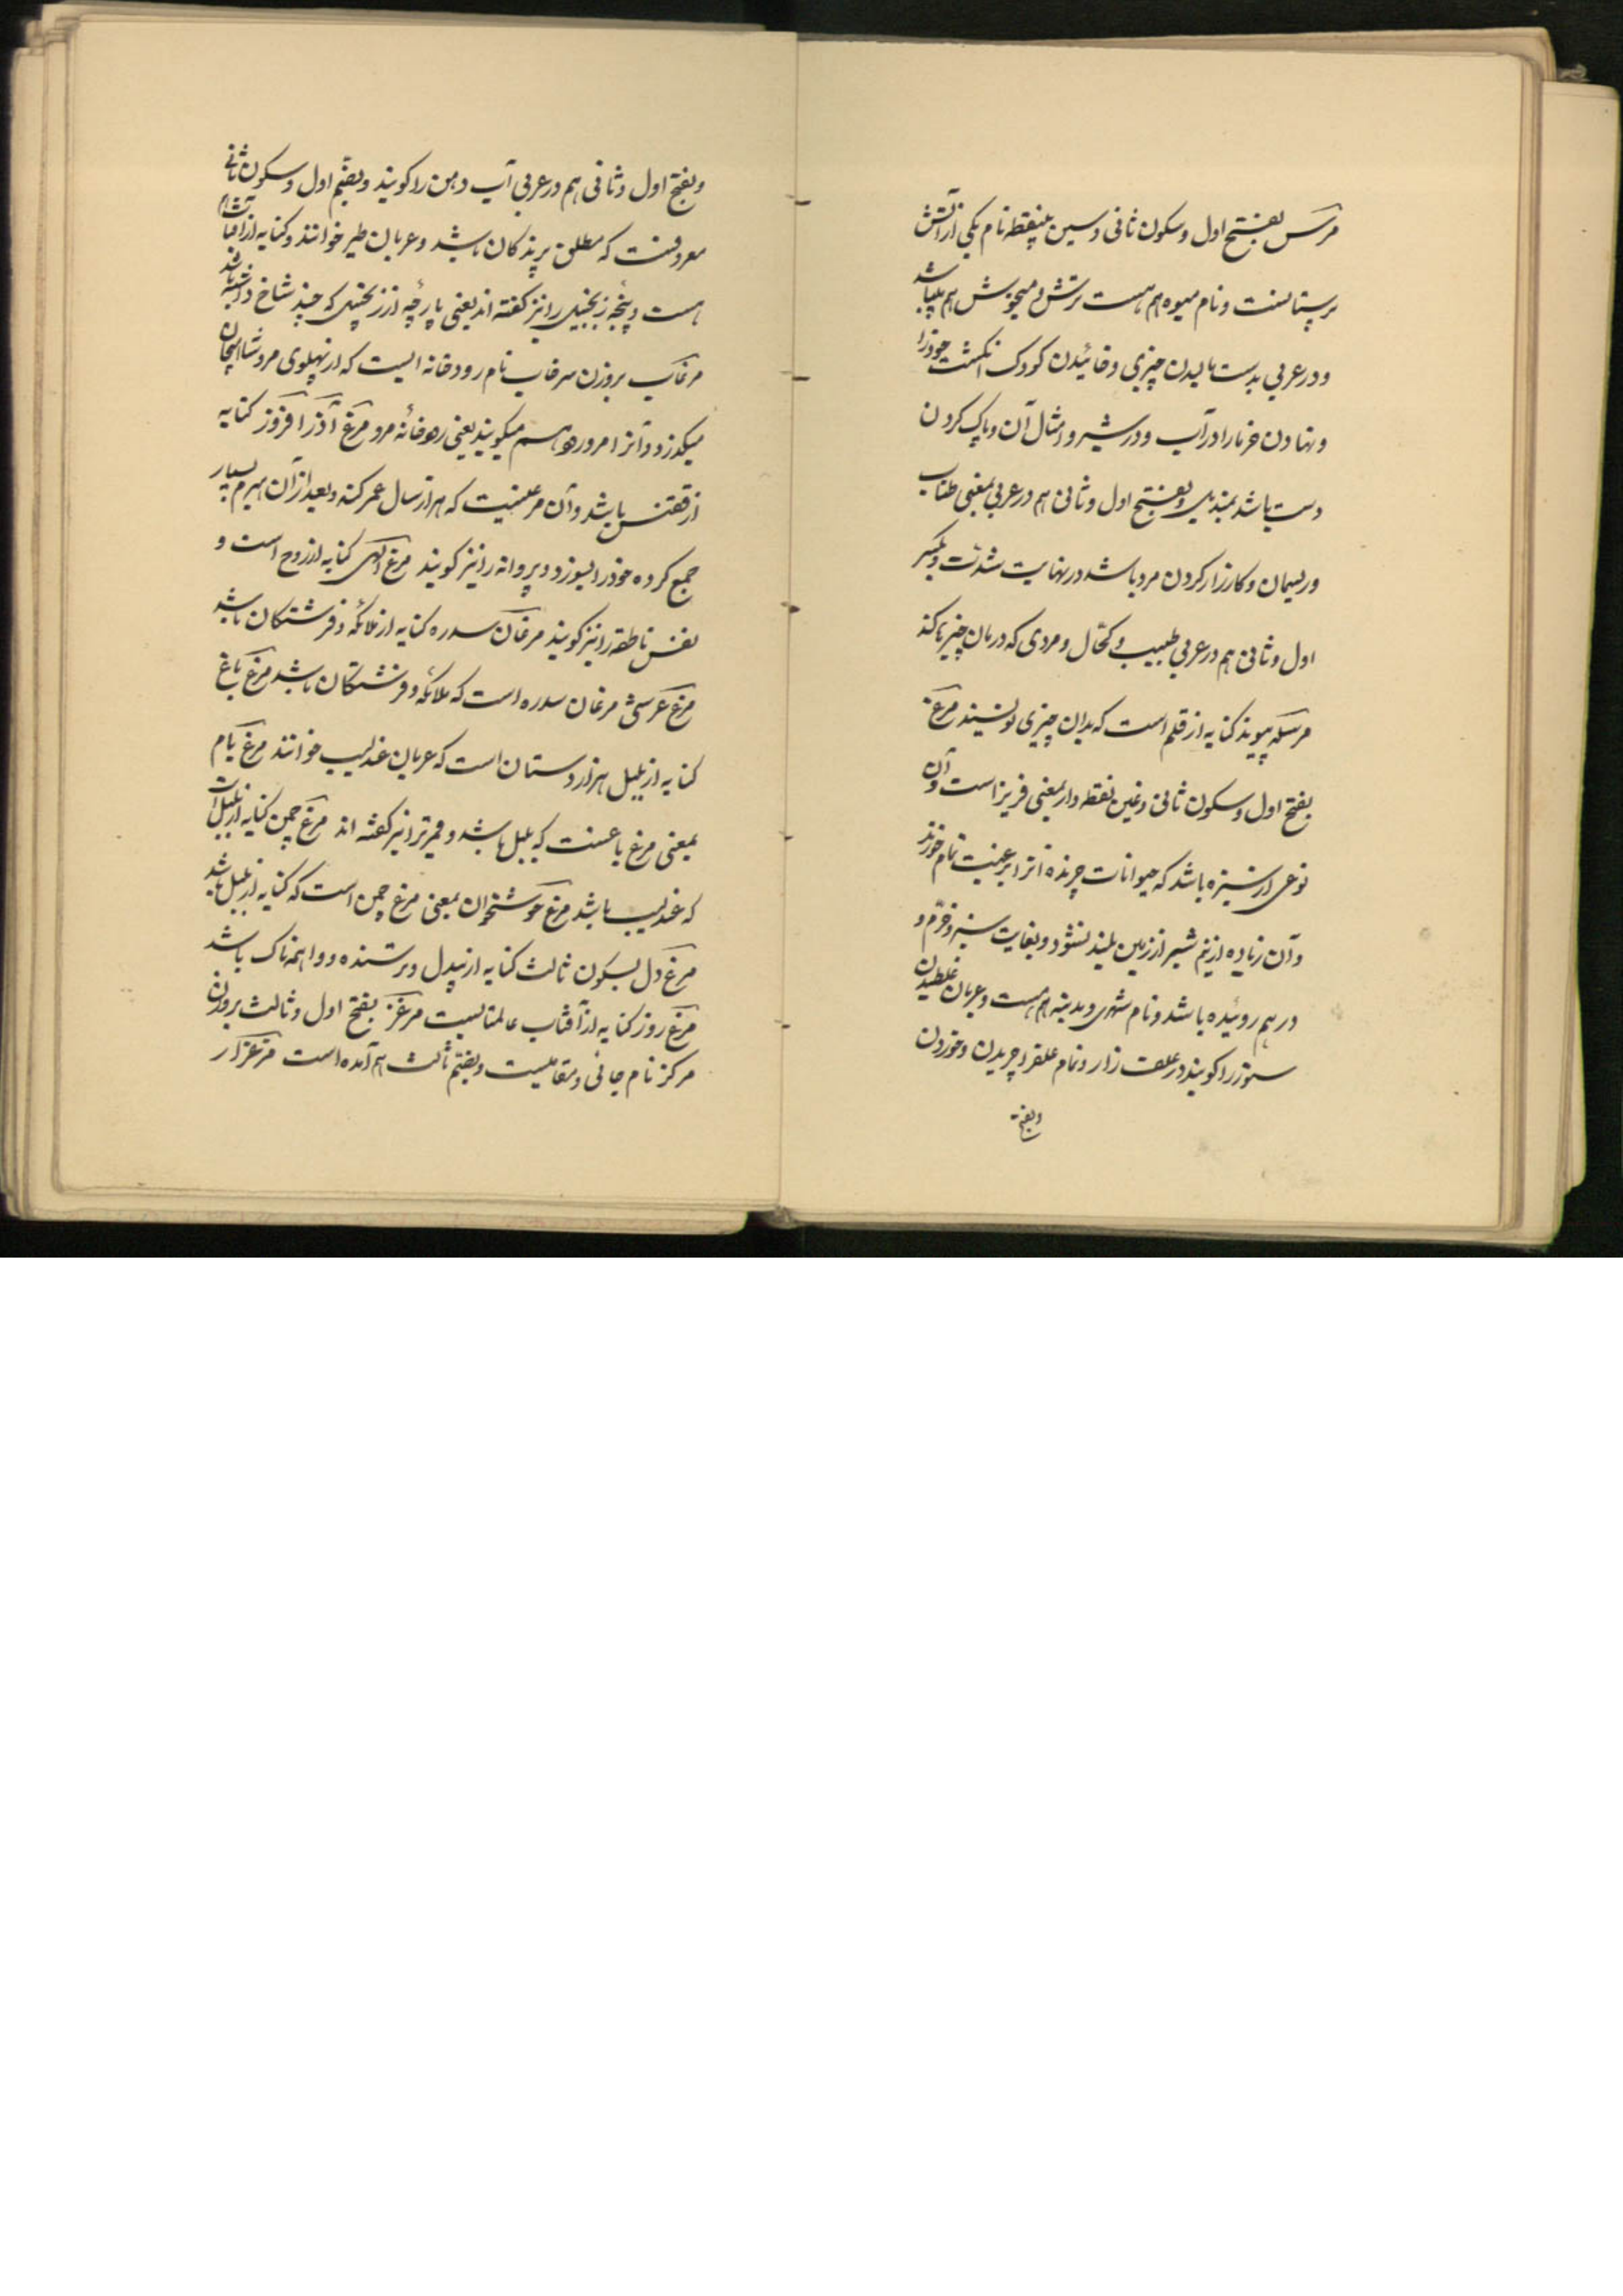 مرس بفتح اول و سکون ثانی و سین بینقطه نام یکی از آتش
پرستانست و نام میوه هم هست ترش و میخوش هم میباشد
و در عربی بدست مالیدن چیزی و خائیدن کودک انکشت خود را
و نهادن خرما را در آب و در شیر و امثال آن و پاک کردن
دست باشد بمندیل و بفتح اول و ثانی هم در عربی بمعنی طناب
و ریسمان و کارزار کردن مرد باشد در نهایت شدت و بکسر
اول و ثانی هم در عربی طبیب و کحال و مردی که درمان چیزها کند
مرسله پیوند کنایه از قلم است که بدان چیزی نویسند مرغ
بفتح اول و سکون ثانی و غین نقطه دار بمعنی فریز است و آن
نوعی از سبزه باشد که حیوانات چرنده آنرا برغبت تمام خورند
و آن زیاده از نیم شبر از زمین بلند نشود و بغایت سبز و خرم و
در هم روئیده باشد و نام شهری و مدینه هم هست و عربان غلطیدن
ستور را کویند در علف زار و تمام علف را چریدن و خوردن
و بفتح
و بفتح اول و ثانی هم در عربی آب دهن را کویند و بضم اول و سکون ثانی
معروفست که مطلق پرندکان باشد و عربان طیر خوانند و کنایه از آفتاب
هست و پنجه زنجبیل را نیز کفته اند یعنی پارچه از زنجبیل که چند شاخ داشته باشد
مرغاب بروزن سرخاب نام رودخانه ایست که از پهلوی مرو شاهجان
میکذرد و آنرا مرورود هم میکویند یعنی رودخانه مرو مرغ آذر افروز کنایه
از ققنس باشد و آن مرغیست که هزار سال عمر کند و بعد از آن هیزم بسیار
جمع کرده خود را بسوزد و پروانه را نیز کویند مرغ الهی کنایه از روح است و
نفس ناطقه را نیز کویند مرغان سدره کنایه از ملائکه و فرشتکان باشد
مرغ عرشی مرغان سدره است که ملائکه و فرشتکان باشد مرغ باغ
کنایه از بلبل هزار دستان است که عربان عندلیب خوانند مرغ بام
بمعنی مرغ باغست که بلبل باشد و قمری را نیز کفته اند مرغ چمن کنایه از بلبل است
که عندلیب باشد مرغ خوشخوان بمعنی مرغ چمن است که کنایه از بلبل باشد
مرغ دل بسکون ثالث کنایه از بیدل و ترسنده و واهمه ناک باشد
مرغ روز کنایه از آفتاب عالمتابست مرغز بفتح اول و ثالث بروزن
مرکز نام جائی و مقامیست و بضم ثالث هم آمده است مرغزار